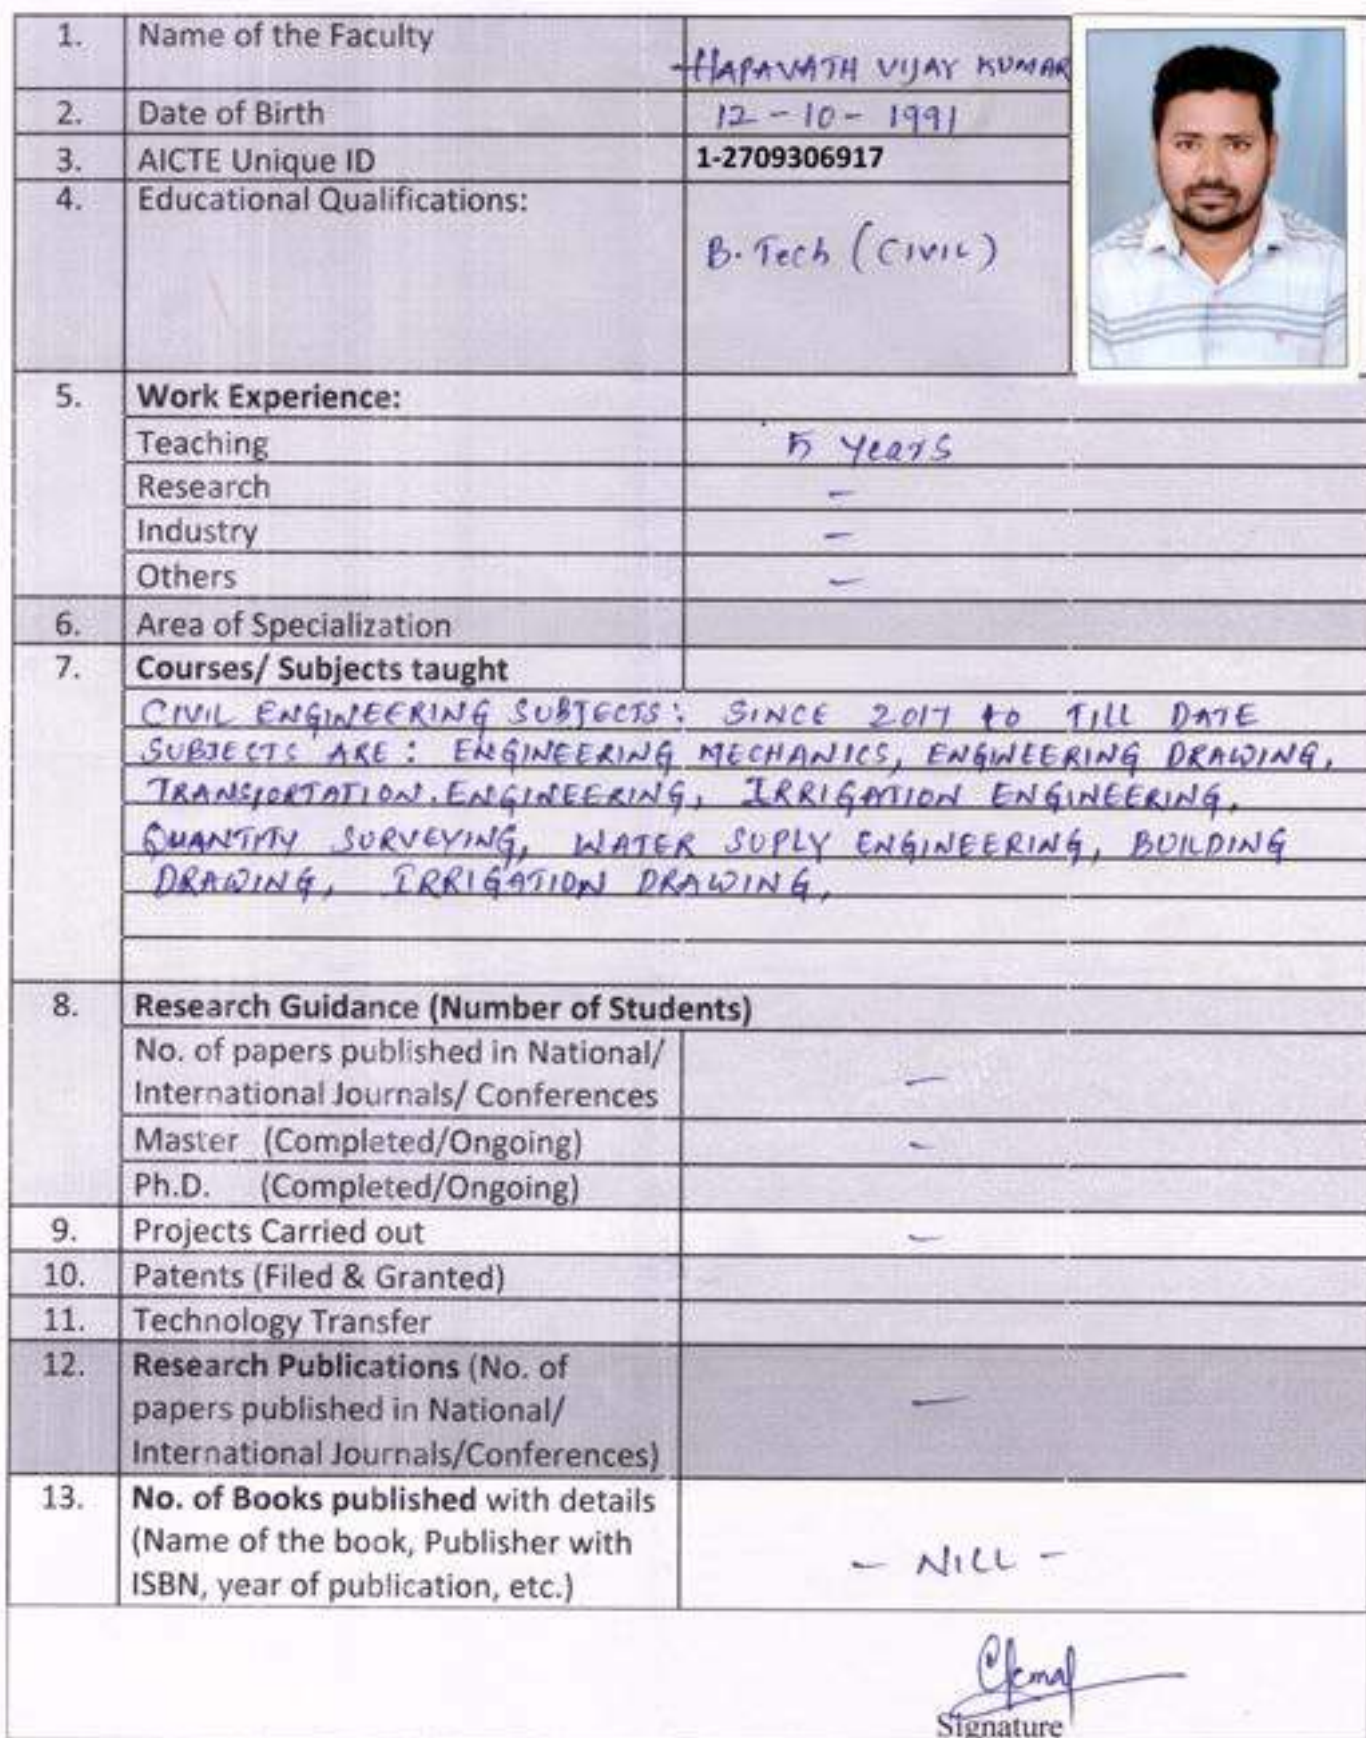 1. Name of the Faculty HAPAVATH VIJAY KUMAR
2. Date of Birth 12-10-1991
3. AICTE Unique ID 1-2709306917
4. Educational Qualifications: B.Tech (CIVIL)
5. Work Experience:
Teaching 5 Years
Research -
Industry -
Others -
6. Area of Specialization
7. Courses/ Subjects taught
CIVIL ENGINEERING SUBJECTS: SINCE 2017 to TILL DATE
SUBJECTS ARE: ENGINEERING MECHANICS, ENGINEERING DRAWING,
TRANSPORTATION. ENGINEERING, IRRIGATION ENGINEERING,
QUANTITY SURVEYING, WATER SUPLY ENGINEERING, BUILDING
DRAWING, IRRIGATION DRAWING,
8. Research Guidance (Number of Students)
No. of papers published in National/
International Journals/ Conferences -
Master (Completed/Ongoing) -
Ph.D. (Completed/Ongoing)
9. Projects Carried out -
10. Patents (Filed & Granted)
11. Technology Transfer
12. Research Publications (No. of
papers published in National/ -
International Journals/Conferences)
13. No. of Books published with details
(Name of the book, Publisher with - NILL -
ISBN, year of publication, etc.)
Signature